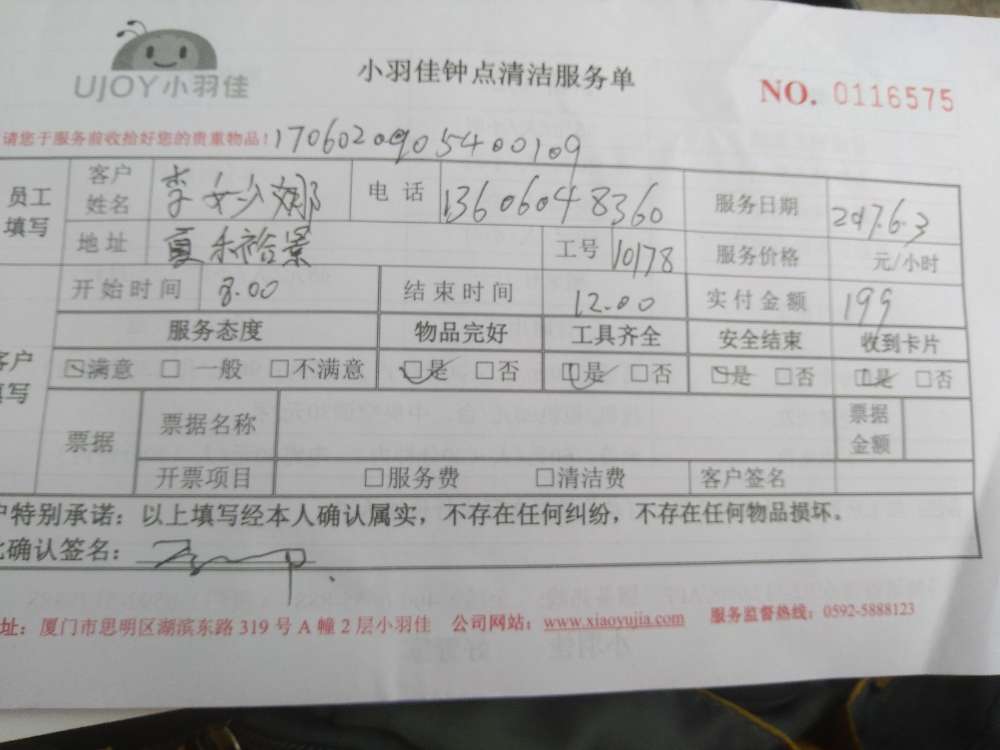 UJOY小羽佳
小羽佳钟点清洁服务单
NO. 0116575
请您于服务前收拾好您的贵重物品！170602090540010​9
员工填写 客户姓名 李 娜 电话 13606048360 服务日期 2017.6.3
地址 夏禾裕景 工号 10178 服务价格 元/小时
开始时间 8.00 结束时间 12.00 实付金额 199
服务态度 物品完好 工具齐全 安全结束 收到卡片
客户填写 ☑满意 □一般 □不满意 ☑是 □否 ☑是 □否 ☑是 □否 ☑是 □否
票据 票据名称 票据金额
开票项目 □服务费 □清洁费 客户签名
户特别承诺：以上填写经本人确认属实，不存在任何纠纷，不存在任何物品损坏。
此确认签名：
址：厦门市思明区湖滨东路 319 号 A 幢 2 层小羽佳 公司网站：www.xiaoyujia.com 服务监督热线：0592-5888123